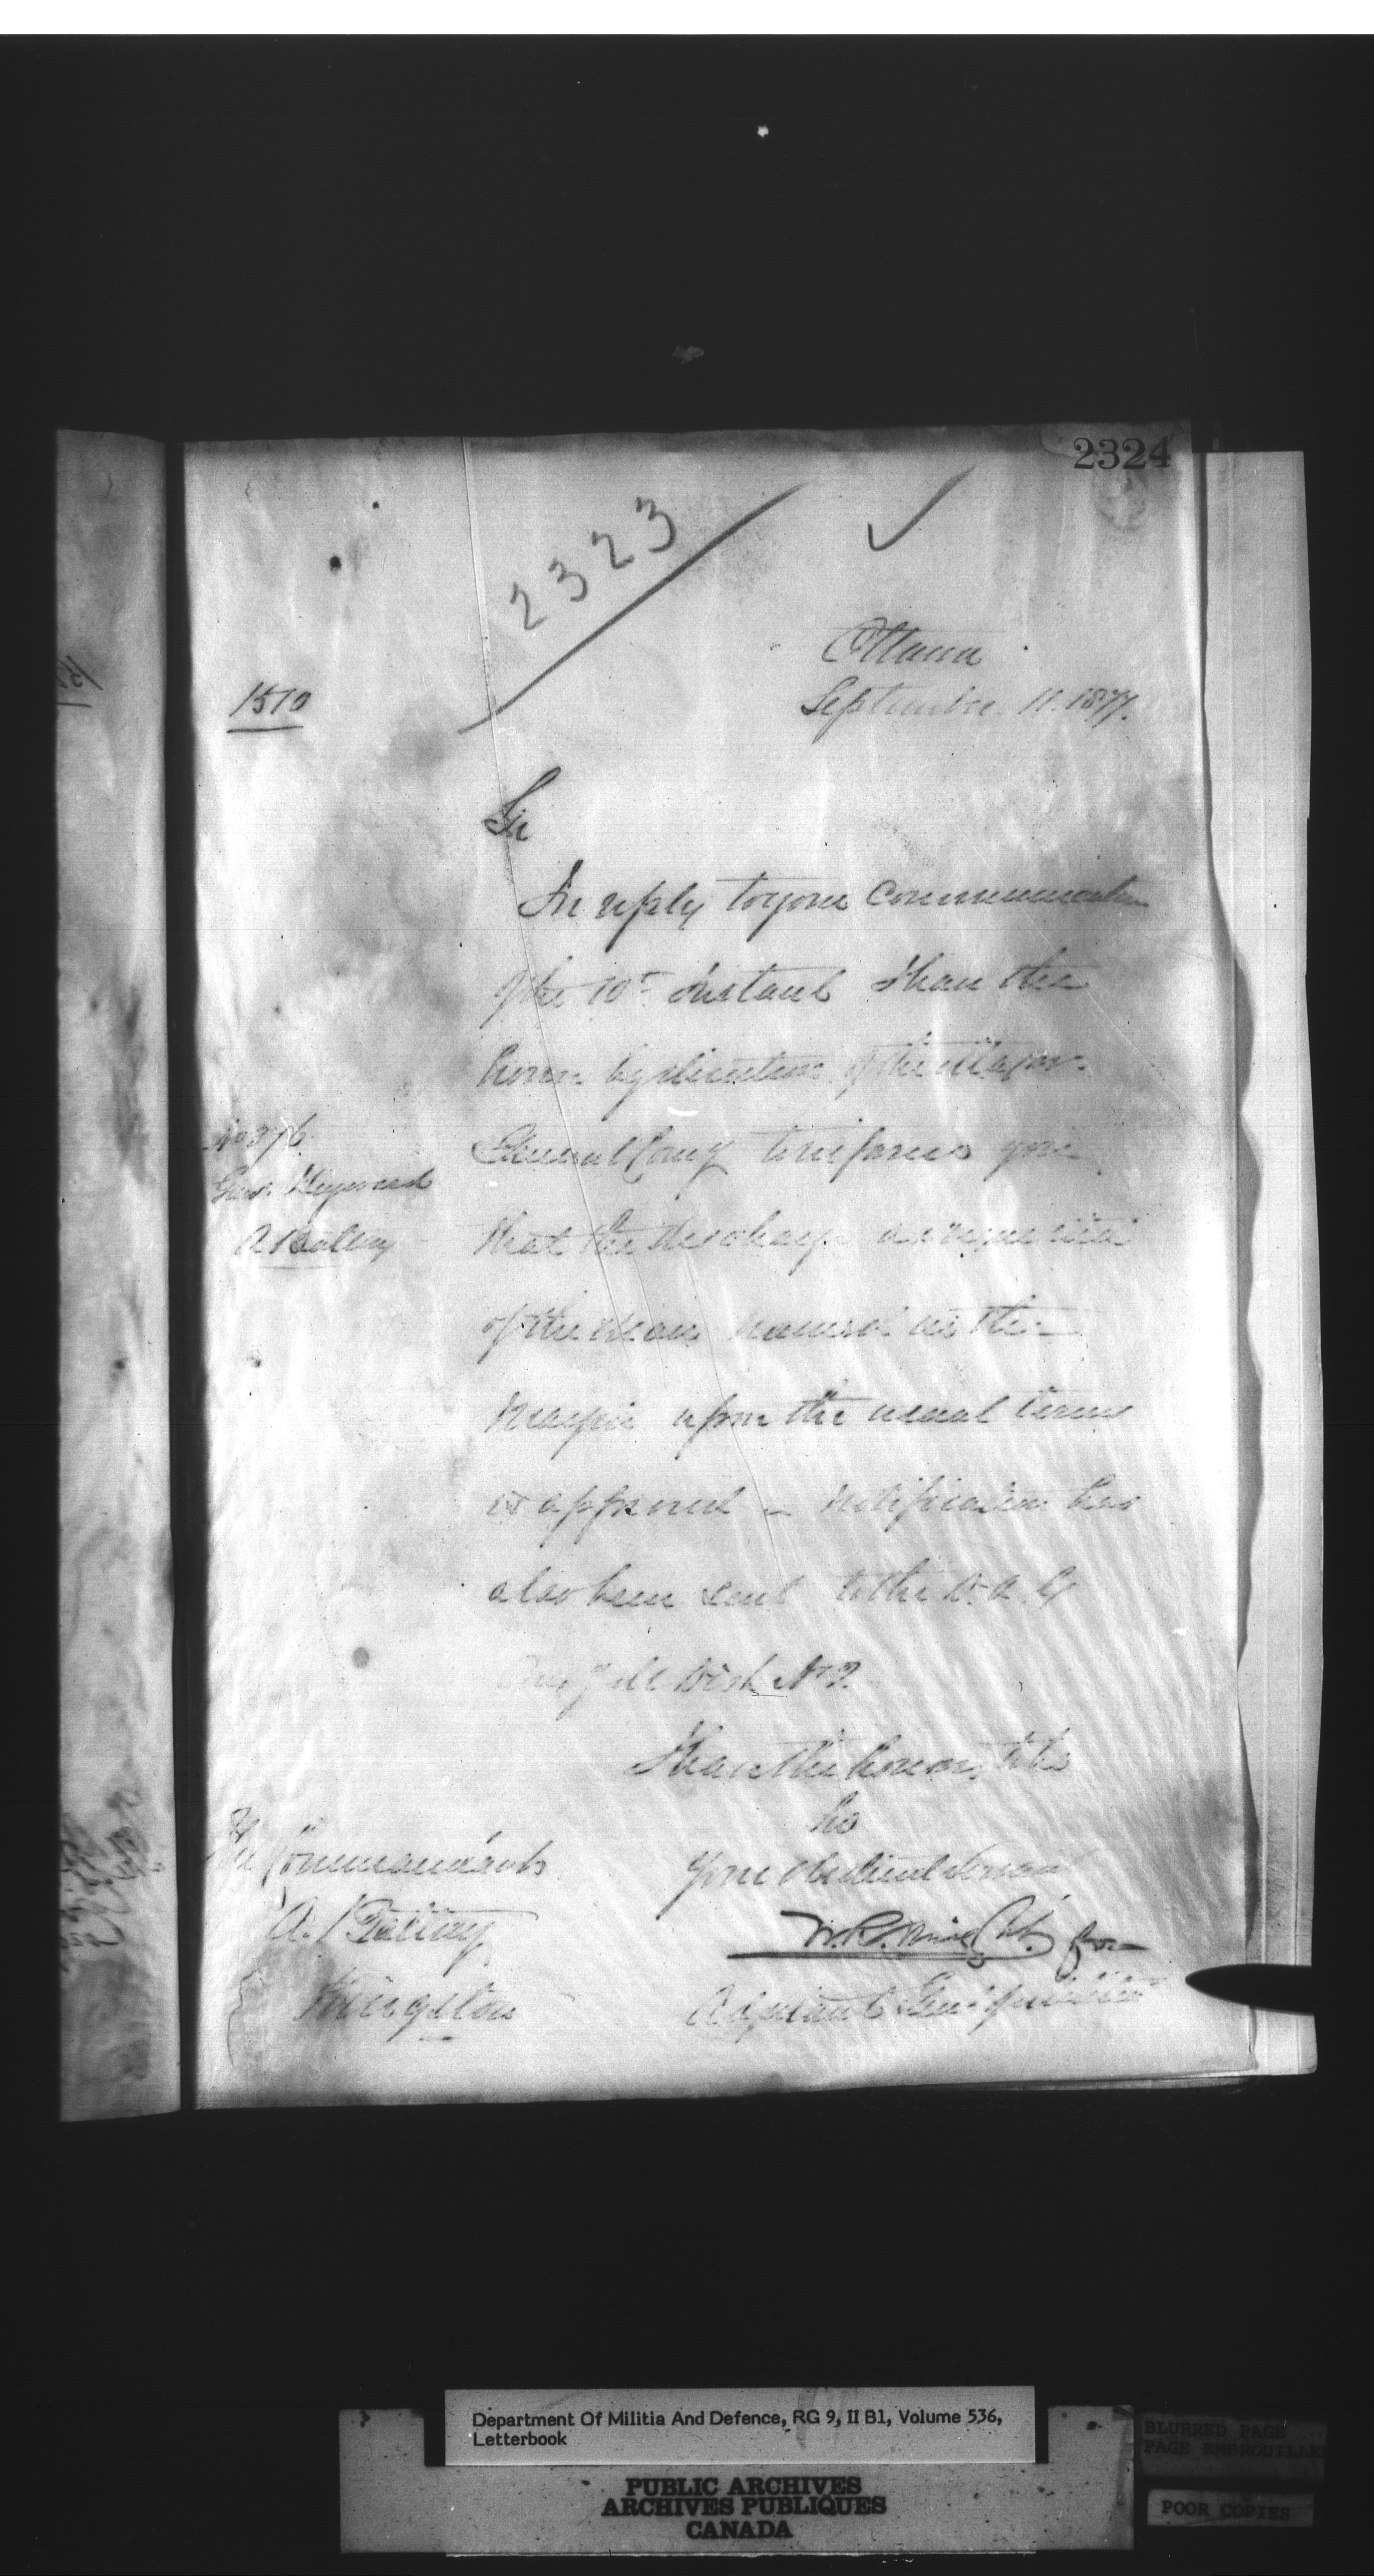 2324
2323
Ottawa
September 11. 1877.
1510
Sir
In reply to your communication
of the 10th instant I have the
honor by direction of the Major
General Comg to inform you
No 376
Gunr. Heyward
A Battery
that the discharge as requested
of the man named in the
margin upon the usual terms
is approved notification has
also been sent to the D. A. G
Comg Mil Dist No 3.
I have the honor to be
Sir
Your obedient Servant
for
Adjutant Genl of Militia
The Commandant
A. Battery
Kingston
Department Of Militia And Defence, RG 9, II B1, Volume 536,
Letterbook
PUBLIC ARCHIVES
ARCHIVES PUBLIQUES
CANADA
BLURRED PAGE
PAGE EMBROUILLE
POOR COPIES